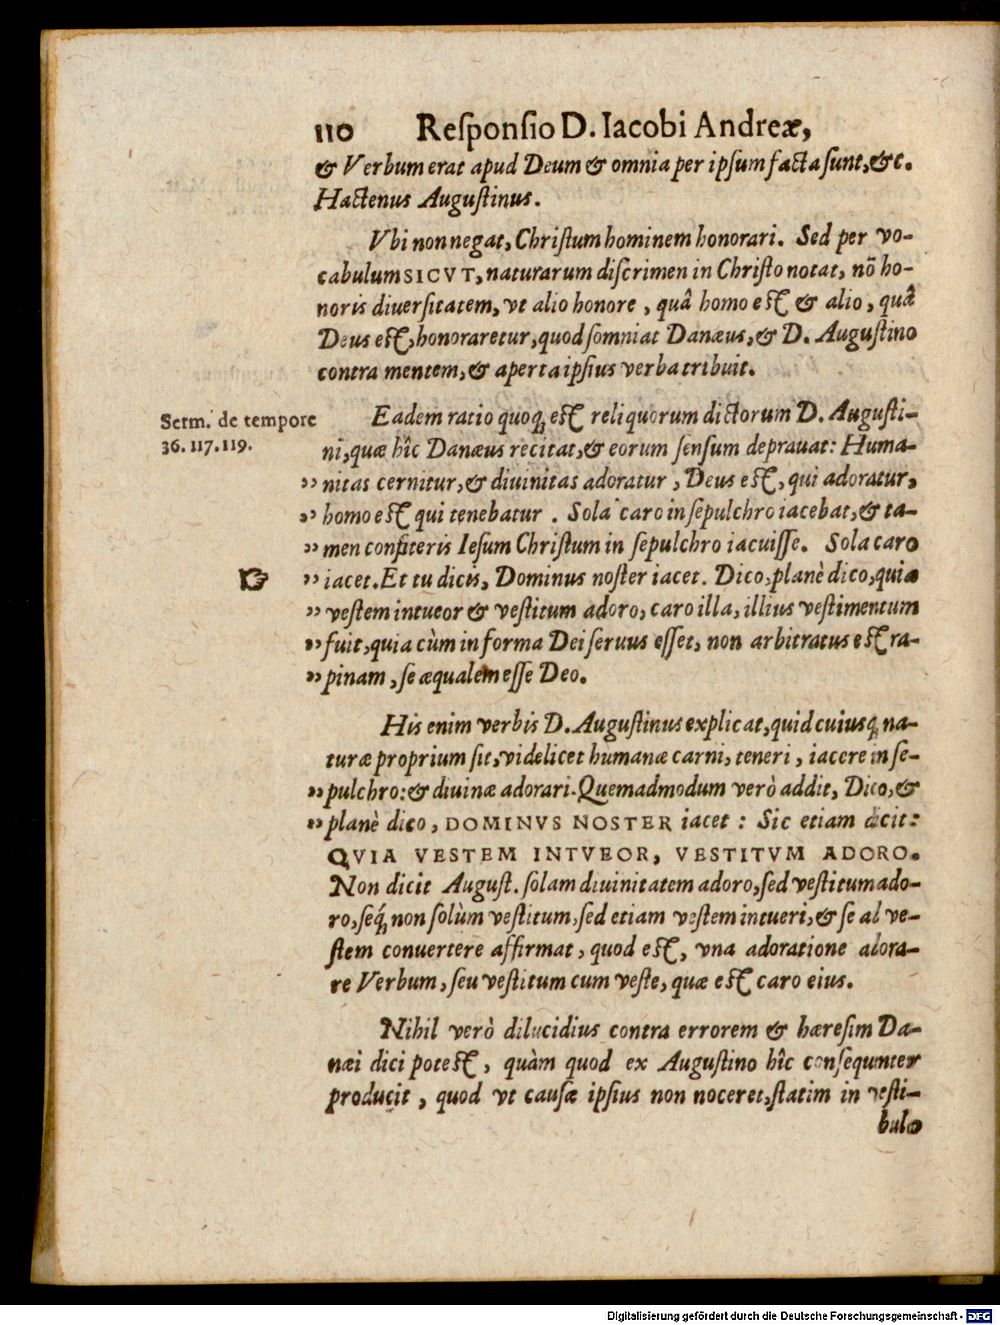 110 Responsio D. Iacobi Andreæ,
& Verbum erat apud Deum & omnia per ipsum facta sunt, &c.
Hactenus Augustinus.
Vbi non negat, Christum hominem honorari. Sed per vo-
cabulum SICVT, naturarum discrimen in Christo notat, nõ ho-
noris diuersitatem, vt alio honore, quâ homo est & alio, quâ
Deus est, honoraretur, quod somniat Danæus, & D. Augustino
contra mentem, & aperta ipsius verba tribuit.
Serm. de tempore
36. 117. 119.
Eadem ratio quoq́ est reliquorum dictorum D. Augusti-
ni, quæ hîc Danæus recitat, & eorum sensum deprauat: Huma-
„ nitas cernitur, & diuinitas adoratur, Deus est, qui adoratur,
„ homo est qui tenebatur. Sola caro in sepulchro iacebat, & ta-
„ men confiteris Iesum Christum in sepulchro iacuisse. Sola caro
☞ „ iacet. Et tu dicis, Dominus noster iacet. Dico, planè dico, quia
„ vestem intueor & vestitum adoro, caro illa, illius vestimentum
„ fuit, quia cùm in forma Dei seruus esset, non arbitratus est ra-
„ pinam, se æqualem esse Deo.
His enim verbis D. Augustinus explicat, quid cuiusq́ na-
turæ proprium sit, videlicet humanæ carni, teneri, iacere in se-
„ pulchro: & diuinæ adorari. Quemadmodum verò addit, Dico, &
„ planè dico, DOMINVS NOSTER iacet: Sic etiam dicit:
QVIA VESTEM INTVEOR, VESTITVM ADORO.
Non dicit August. solam diuinitatem adoro, sed vestitum ado-
ro, seq́ non solùm vestitum, sed etiam vestem intueri, & se ad ve-
stem conuertere affirmat, quod est, vna adoratione adora-
re Verbum, seu vestitum cum veste, quæ est caro eius.
Nihil verò dilucidius contra errorem & hæresim Da-
næi dici potest, quàm quod ex Augustino hîc consequnter
producit, quod vt causæ ipsius non noceret, statim in vesti-
bulo
Digitalisierung gefördert durch die Deutsche Forschungsgemeinschaft - DFG